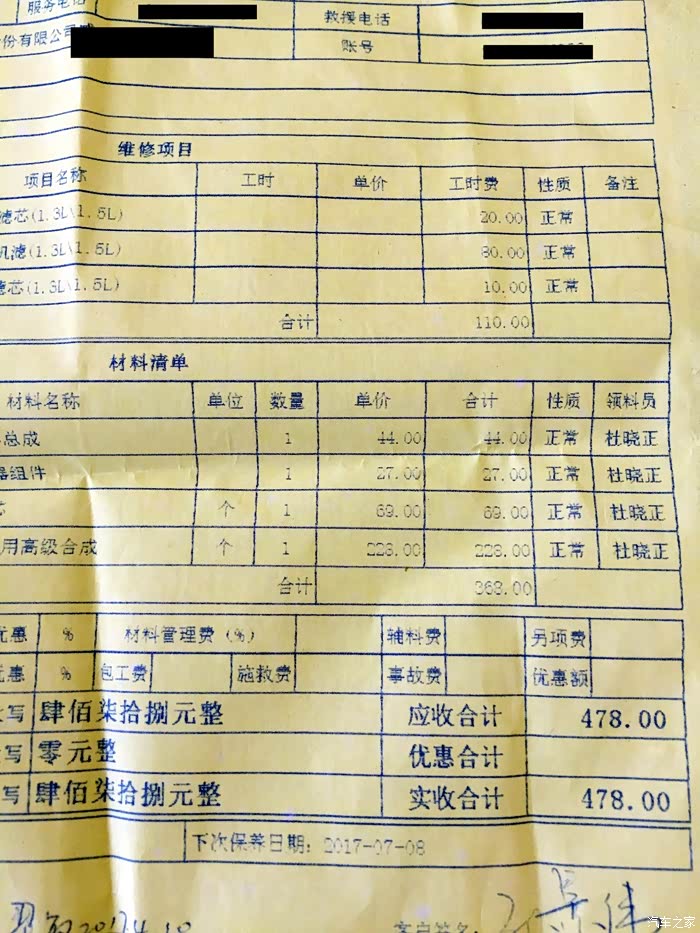 服务电话 救援电话
份有限公司 账号
维修项目
项目名称 工时 单价 工时费 性质 备注
滤芯(1.3L\1.5L) 20.00 正常
机滤(1.3L\1.5L) 80.00 正常
滤芯(1.3L\1.5L) 10.00 正常
合计 110.00
材料清单
材料名称 单位 数量 单价 合计 性质 领料员
总成 1 44.00 44.00 正常 杜晓正
器组件 1 27.00 27.00 正常 杜晓正
芯 个 1 69.00 69.00 正常 杜晓正
用高级合成 个 1 228.00 228.00 正常 杜晓正
合计 368.00
优惠 % 材料管理费(%) 辅料费 另项费
优惠 % 包工费 施救费 事故费 优惠额
大写 肆佰柒拾捌元整 应收合计 478.00
写 零元整 优惠合计
写 肆佰柒拾捌元整 实收合计 478.00
下次保养日期: 2017-07-08
2017.4.10 客户签名:
汽车之家